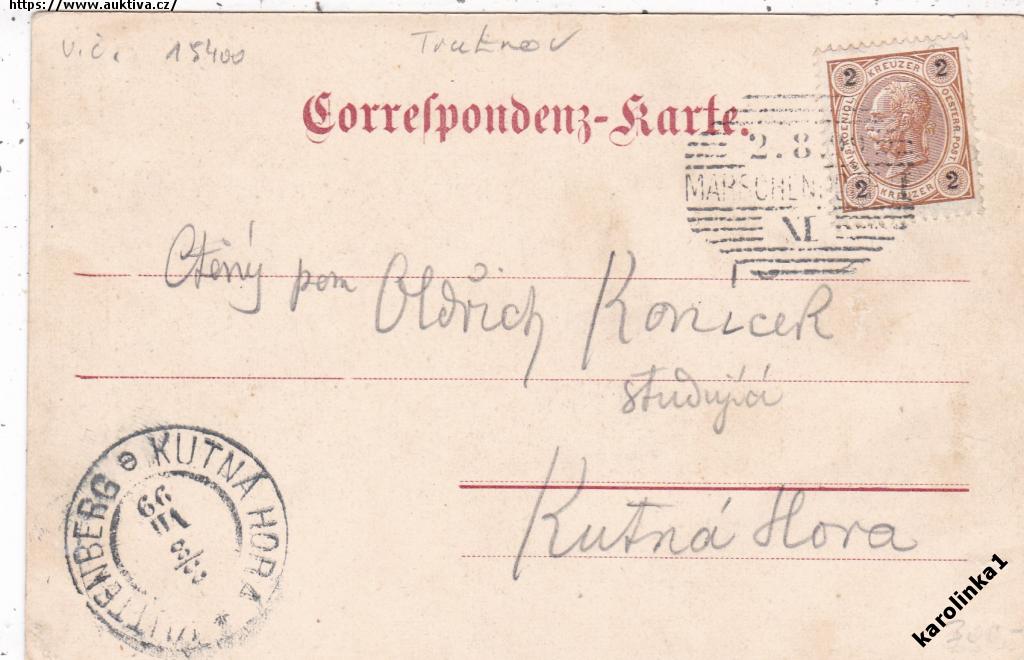 https://www.auktiva.cz/
v.č. 15400
Trutnov
Correſpondenz-Karte.
2 KREUZER 2
KAIS. KOENIGL. OESTERR. POST.
2 KREUZER 2
2.8.
MARSCHEN
VI
Ctěný pan Oldřich Koníček
studující
Kutná Hora
KUTNÁ HORA
KUTTENBERG
99
VIII
karolinka1
300,-